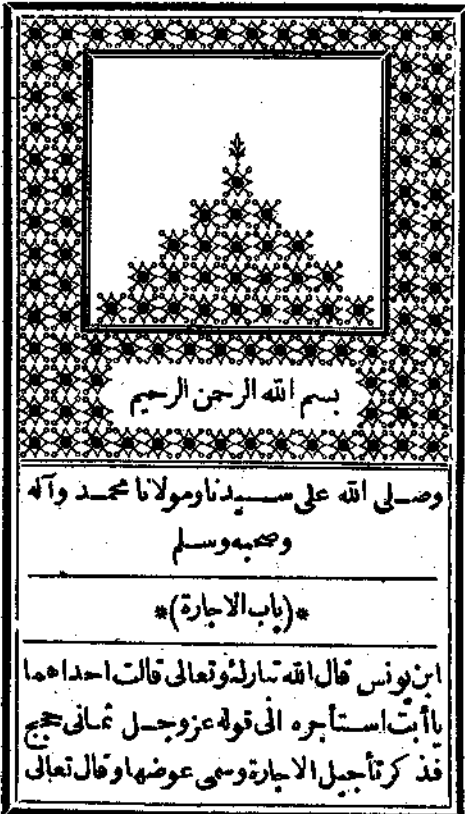 بسم الله الرحمن الرحيم
وصلى الله على سيدنا ومولانا محمد وآله
وصحبه وسلم
*(باب الاجارة)*
ابن يونس قال الله تبارك وتعالى قالت احداهما
ياأبت استأجره الى قوله عز وجل ثمانى حجج
فذكر تأجيل الاجارة وسمى عوضها وقال تعالى